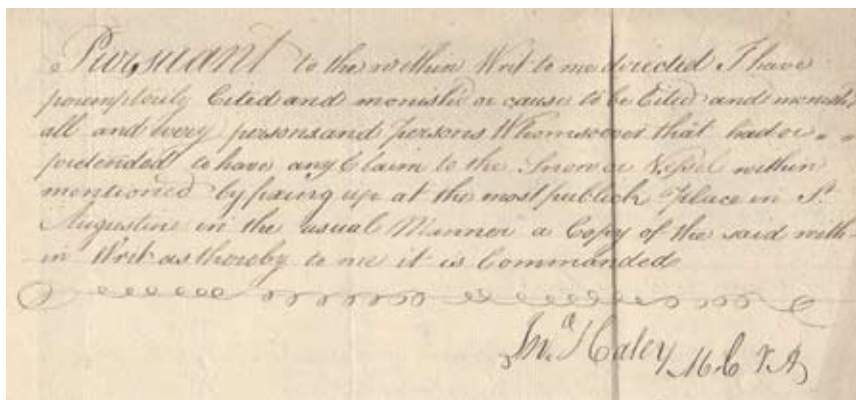 Pursuant to the within Writ to me directed I have
peremptorily Cited and monished or cause to be Cited and monish
all and every persons and Persons Whomsoever that had or "
pretended to have any Claim to the Snow or Vessel within
mentioned by fixing up at the most publick Place in St.
Augustine in the usual Manner a Copy of the said with-
in Writ as thereby to me it is Commanded
Jno. Haley M C V A